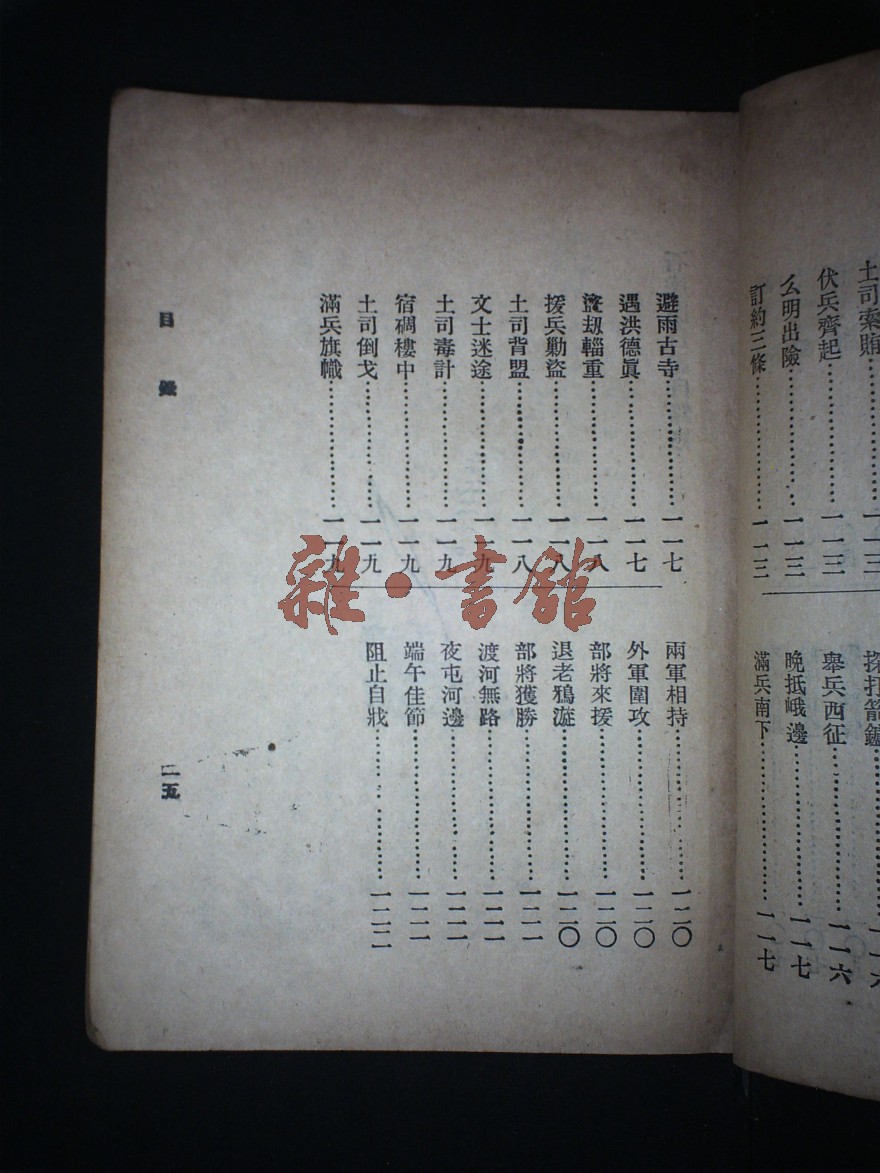 土司索賄………一一三
伏兵齊起………一一三
么明出險………一一三
訂約三條………一一三
探打箭鑪………一一六
舉兵西征………一一六
晚抵峨邊………一一七
滿兵南下………一一七
避雨古寺………一一七
遇洪德眞………一一七
盜刼輜重………一一八
援兵勦盜………一一八
土司背盟………一一八
文士迷途………一一九
土司毒計………一一九
宿碉樓中………一一九
土司倒戈………一一九
滿兵旗幟………一一九
兩軍相持………一二〇
外軍圍攻………一二〇
部將來援………一二〇
退老鴉漩………一二〇
部將獲勝………一二一
渡河無路………一二一
夜屯河邊………一二一
端午佳節………一二一
阻止自戕………一二二
目錄
二五
雜·書館